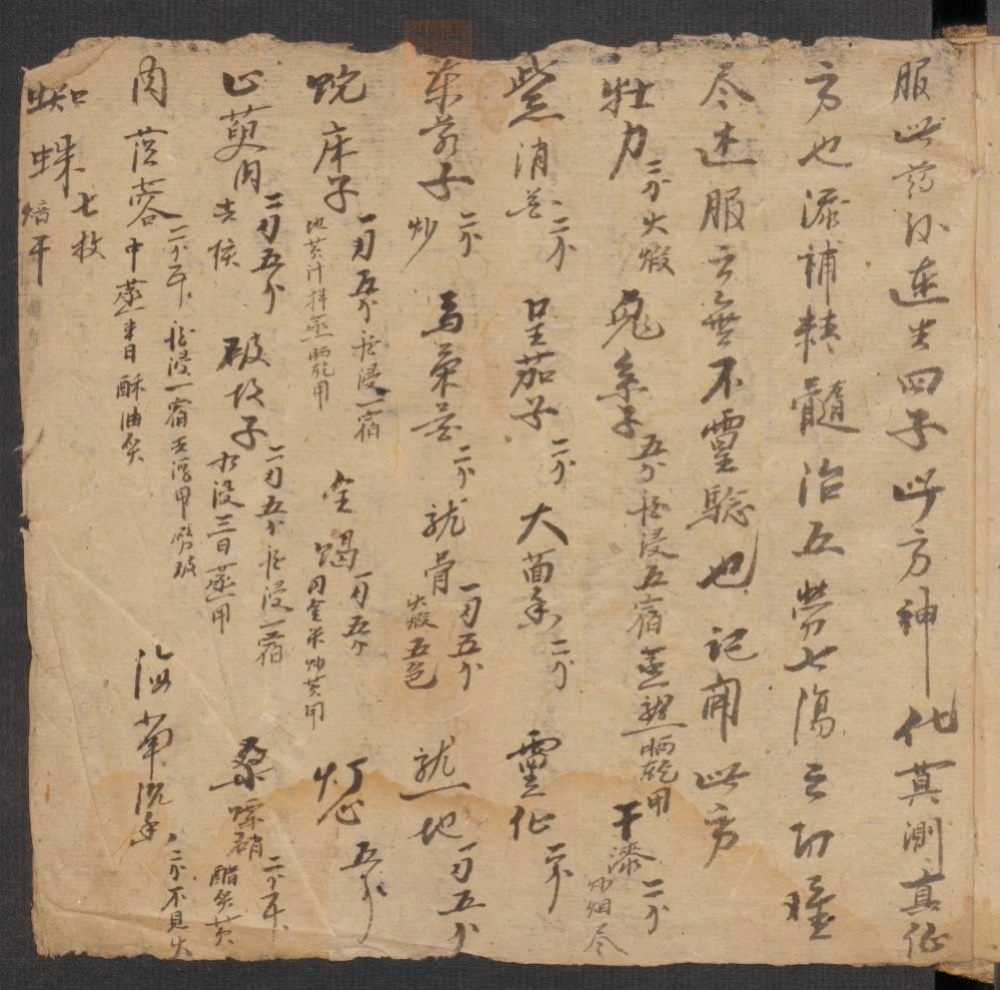 服此药後連生四子此方神化莫測真仙
方也添補精髓治五勞七傷之功难
尽述服之無不靈驗也 記開此方
牡力二分火煅 兔糸子五分酒浸五宿蒸 晒乾用 干漆二分炒烟尽
紫消花二分 呈茄子二分 大茴香二分 靈仙二分
東茄子二分炒 馬藺花二分 龍骨一刄五分火煅五色 熟地一刄五分
蛇床子一刄五分酒浸一宿地黄汁拌蒸晒乾用 全蝎一刄五分用金米炒黄用 灯心五分
山萸肉二刄五分去核 破故子二刄五分酒浸一宿水没三日蒸用 桑嘌硝二分半醋炙黄
肉蓯蓉二分半酒浸一宿去浮甲劈破中蒸半日酥油炙 海南沉香二分不見火
蜘蛛七枚焙干